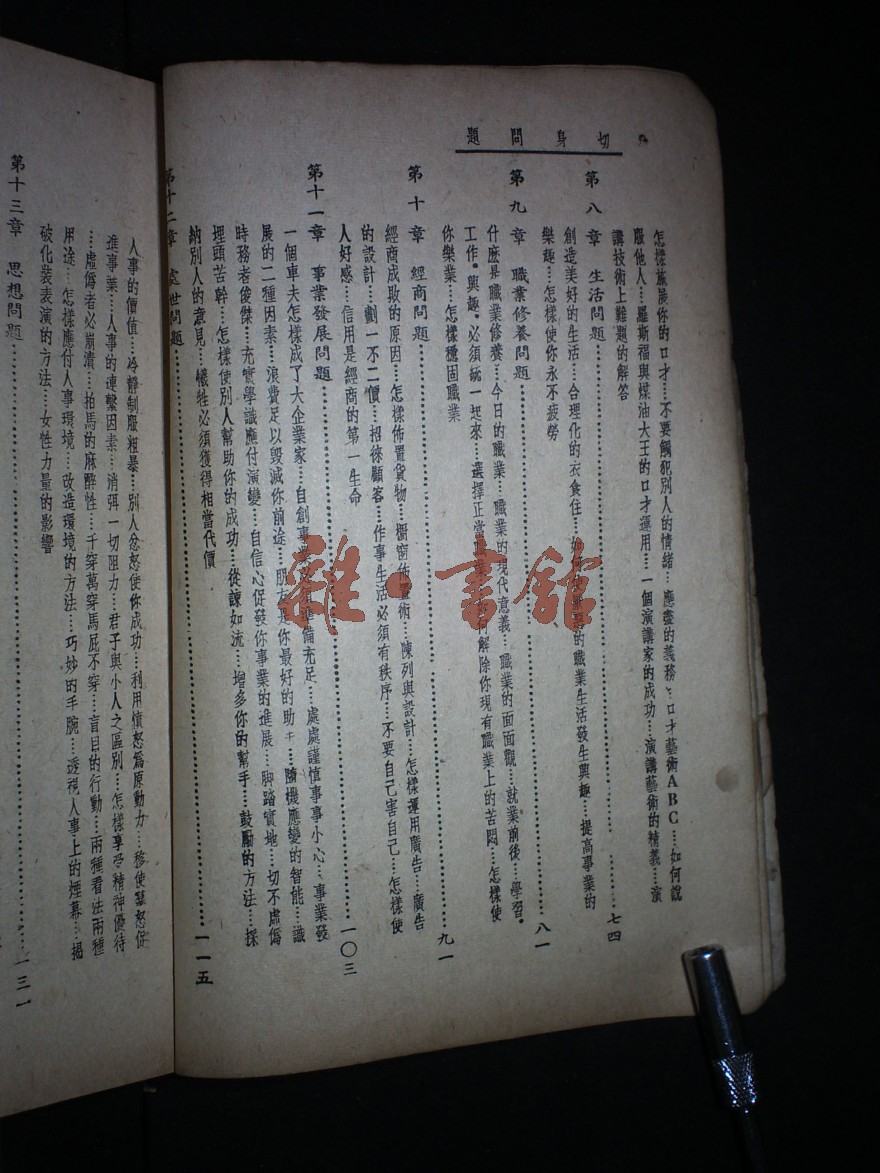 切身問題
怎樣施展你的口才…不要觸犯別人的情緒…應盡的義務…口才藝術ABC…如何說
服他人…羅斯福與煤油大王的口才運用…一個演講家的成功…演講藝術的精義…演
講技術上難題的解答
第八章 生活問題……七四
創造美好的生活…合理化的衣食住…的職業生活發生興趣…提高事業的
樂趣…怎樣使你永不疲勞
第九章 職業修養問題……八一
什麽是職業修養…今日的職業…職業的現代意義…職業的面面觀…就業前後…學習•
工作•興趣•必須統一起來…選擇正當職業…何解除你現有職業上的苦悶…怎樣使
你樂業…怎樣穩固職業
第十章 經商問題……九一
經商成敗的原因…怎樣佈置貨物…櫥窗佈置術…陳列與設計…怎樣運用廣告…廣告
的設計…劃一不二價…招徠顧客…作事生活必須有秩序…不要自己害自己…怎樣使
人好感…信用是經商的第一生命
第十一章 事業發展問題……一〇三
一個車夫怎樣成了大企業家…自創事業必須準備充足…處處謹慎事事小心…事業發
展的二種因素…浪費足以毀滅你前途…朋友是你最好的助手…隨機應變的智能…識
時務者俊傑…充實學識應付演變…自信心促發你事業的進展…脚踏實地…切不虛僞
埋頭苦幹…怎樣使別人幫助你的成功…從諫如流…增多你的幫手…鼓勵的方法…採
納別人的意見…犧牲必須獲得相當代價
第十二章 處世問題……一一五
人事的價值…冷靜制服粗暴…別人忿怒使你成功…利用憤怒爲原動力…移使憤怒促
進事業…人事的連繫因素…消弭一切阻力…君子與小人之區別…怎樣享受精神優待
…虛僞者必崩潰…拍馬的麻醉性…千穿萬穿馬屁不穿…盲目的行動…兩種看法兩種
用途…怎樣應付人事環境…改造環境的方法…巧妙的手腕…透視人事上的煙幕…揭
破化裝表演的方法…女性力量的影響
第十三章 思想問題……一三一
雜·書館